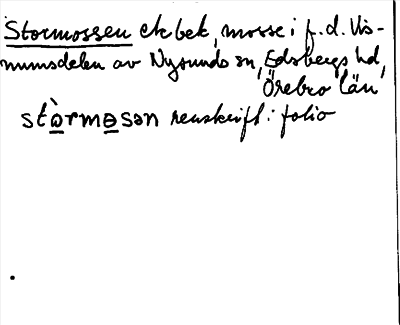 Stormossen ek bek, mosse i f.d. Vis-
numsdelen av Nysunds sn, Edsbergs hd,
Örebro län
stòrmɵsən renskrift i folio